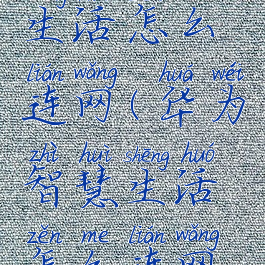 生活怎么
lián wǎng huá wéi
连网(华为
zhì huì shēng huó
智慧生活
zěn me lián wǎng
怎么连网